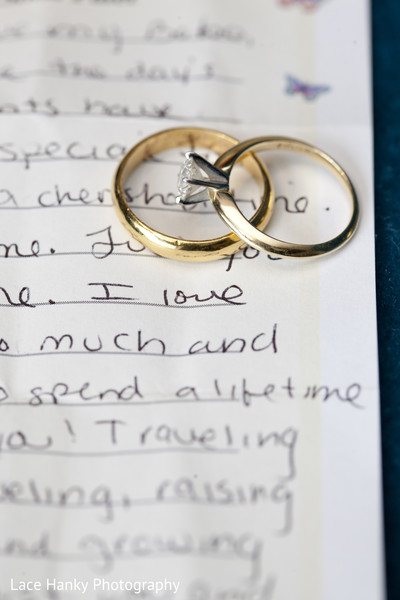 the day's
have
special
a cherish
me.
me. I love
much and
spend a lifetime
you! Traveling
raising
and growing
and
Lace Hanky Photography